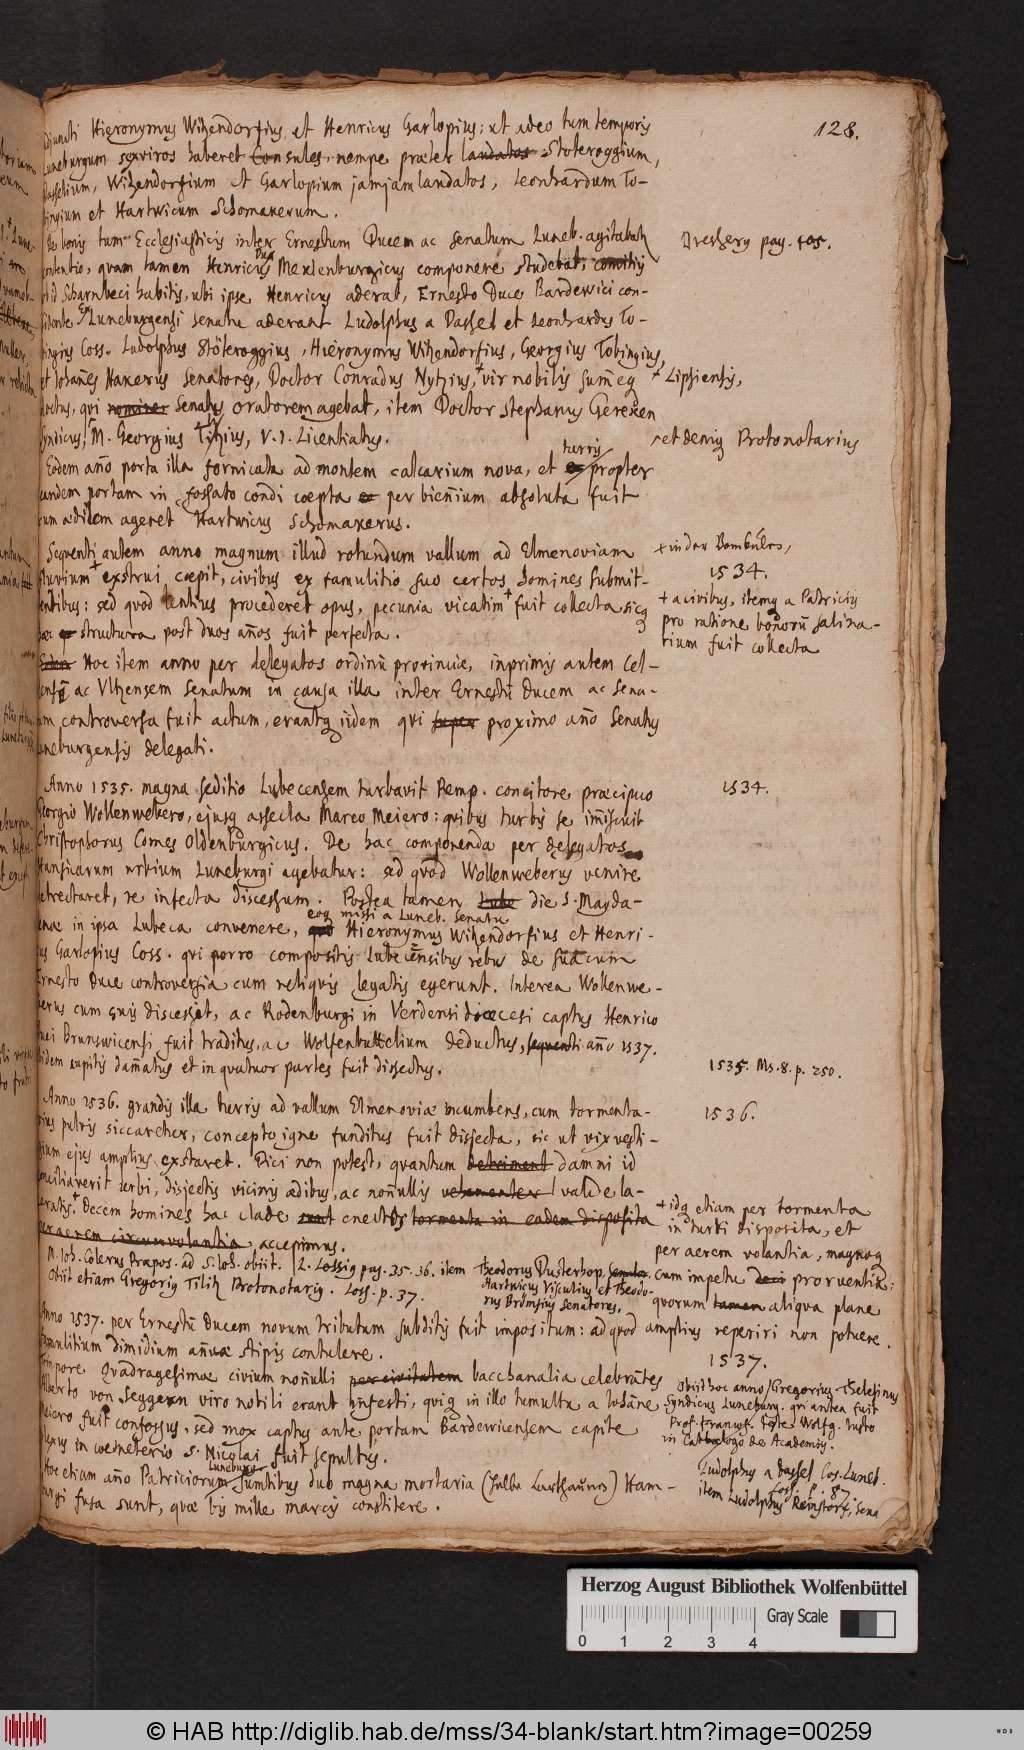 128.
Hieronymus Witzendorfius et Henricus Garlopius: ut adeo tum temporis
Luneburgum sexviros haberet Consules, nempe præter laudatos Stöteroggium,
Dasselium, Witzendorfium et Garlopium jamjam laudatos, Leonhardum To-
bingium et Hartwicum Schomakerum.
De bonis tum Ecclesiasticis inter Ernestum Ducem ac Senatum Luneb. agitabatur
contentio, quam tamen Henricus Dux Meklenburgicus componere studebat, comitiis
Scharnbeci habitis, ubi ipse Henricus aderat, Ernesto Duce Bardewici con-
sidente. Ex Luneburgensi senatu aderant Ludolphus a Dassel et Leonhardus To-
bingius Coss. Ludolphus Stöteroggius, Hieronymus Witzendorfius, Georgius Tobingius,
et Johannes Hakerus Senatores, Doctor Conradus Nytzius, + vir nobilis summeq
doctus, qui nomine Senatus oratorem agebat, item Doctor Stephanus Gereken
Syndicus, M. Georgius Tilzius, V. J. Licentiatus.
Dreshery pag. 105.
+ Lipsiensis,
et deniq Protonotarius
Eodem año porta illa fornicata ad montem calcarium nova, et turris propter
eandem portam in fossato condi cœpta per biennium absoluta fuit
cum ædilem ageret Hartwicus Schomakerus.
Sequenti autem anno magnum illud rotundum vallum ad Elmenoviam
fluvium + exstrui cœpit, civibus ex famulitio suo certos homines submit-
tentibus: sed quod lentius procederet opus, pecunia vicatim + fuit collecta sicq
hæc structura post duos años fuit perfecta.
+ in der Bombülro,
1534.
+ a civibus, itemq a Patriciis
pro ratione bonorũ salina-
rium fuit collecta
Hoc item anno per delegatos ordinũ provinciæ, inprimis autem Cel-
lensẽ ac Vltzensem Senatum in causa illa inter Ernestũ Ducem ac Sena-
tum controversa fuit actum, erantq iidem qui super proximo año Senatus
Luneburgensis delegati.
Anno 1535. magna seditio Lubecensem turbavit Remp. concitore præcipuo
Georgio Wollenwebero, ejusq assecla Marco Meiero: quibus turbis se im̃iscuit
Christophorus Comes Oldenburgicus. De hac componenda per delegatos
Hansicarum urbium Luneburgi agebatur: sed quod Wollenweberus venire
detrectaret, re infecta discessum. Postea tamen Lube die S. Magda-
lenæ in ipsa Lubeca convenere, eoq missi a Luneb. Senatu Hieronymus Witzendorfius et Henri-
cus Garlopius Coss. qui porro compositis Lubecensibus rebus de sua cum
Ernesto Duce controversia cum reliquis legatis egerunt. Interea Wollenwe-
berus cum suis discessit, ac Rodenburgi in Verdensi diœcesi captus Henrico
Duci Brunswicensi fuit traditus, ac Wolfenbuttelium deductus, sequenti año 1537.
ibidem capitis dam̃atus et in quatuor partes fuit dissectus.
1534.
1535. Ms. 8. p. 250.
Anno 1536. grandis illa turris ad vallum Elmenoviæ incumbens, cum tormenta-
rius pulvis siccaretur, concepto igne funditus fuit disjecta, sic ut vix vesti-
gium ejus amplius exstaret. Dici non potest, quantum detriment damni id
conciliaverit urbi, disjectis vicinis ædibus, ac noñullis vehementer valide la-
ceratis. + Decem homines hac clade sunt enectos tormenta in eadem disposita
per aerem circumvolantia, accepimus.
1536.
+ idq etiam per tormenta
in turri disposita, et
per aerem volantia, magnoq
cum impetu deci proruentia:
quorum tamen aliqua plane
M. Joh. Colerus Præpos. ad S. Joh. obiit. L. Lossig pag. 35. 36. item Theodorus Dusterhop,
Hartwicus Viscutius et Theodo-
rus Brömsius Senatores.
Obiit etiam Gregorius Tilitz Protonotarius. Loss. p. 37.
Anno 1537. per Ernestũ Ducem novum tributum subditis fuit impositum: ad quod amplius reperiri non potuere.
famulitium dimidium añuæ stipis contulere.
1537.
Tempore Quadragesimæ civium noñulli per civitatem bacchanalia celebrãtes
Alberto von Seggern viro nobili erant infesti, quiq in illo tumultu a Johãne
Meiero fuit confossus, sed mox captus ante portam Bardewicensem capite
plexus in coemeterio S. Nicolai fuit sepultus.
Obiit hoc anno Gregorius Thelesinus
Syndicus Luneburg. qui antea fuit
Prof. Francof. teste Wolfg. Justo
in Catalogo de Academiis.
Ludolphus a Dassel Cos. Luneb.
Loss. p. 87.
item Ludolphus Reinstorf, Sena
Hoc etiam año Patriciorum Luneburg. sumtibus duo magna mortaria (halbe Carthaunen) Ham-
burgi fusa sunt, quæ bis mille marcis constitere.
Herzog August Bibliothek Wolfenbüttel
Gray Scale
0 1 2 3 4
© HAB http://diglib.hab.de/mss/34-blank/start.htm?image=00259
WDB